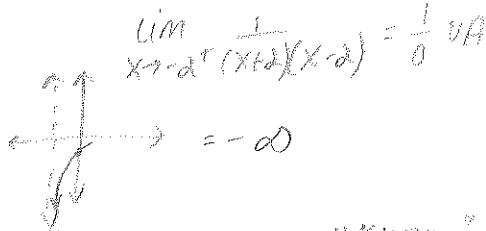 lim x→-2⁺ 1/((x+2)(x-2)) = 1/0 VA
= -∞